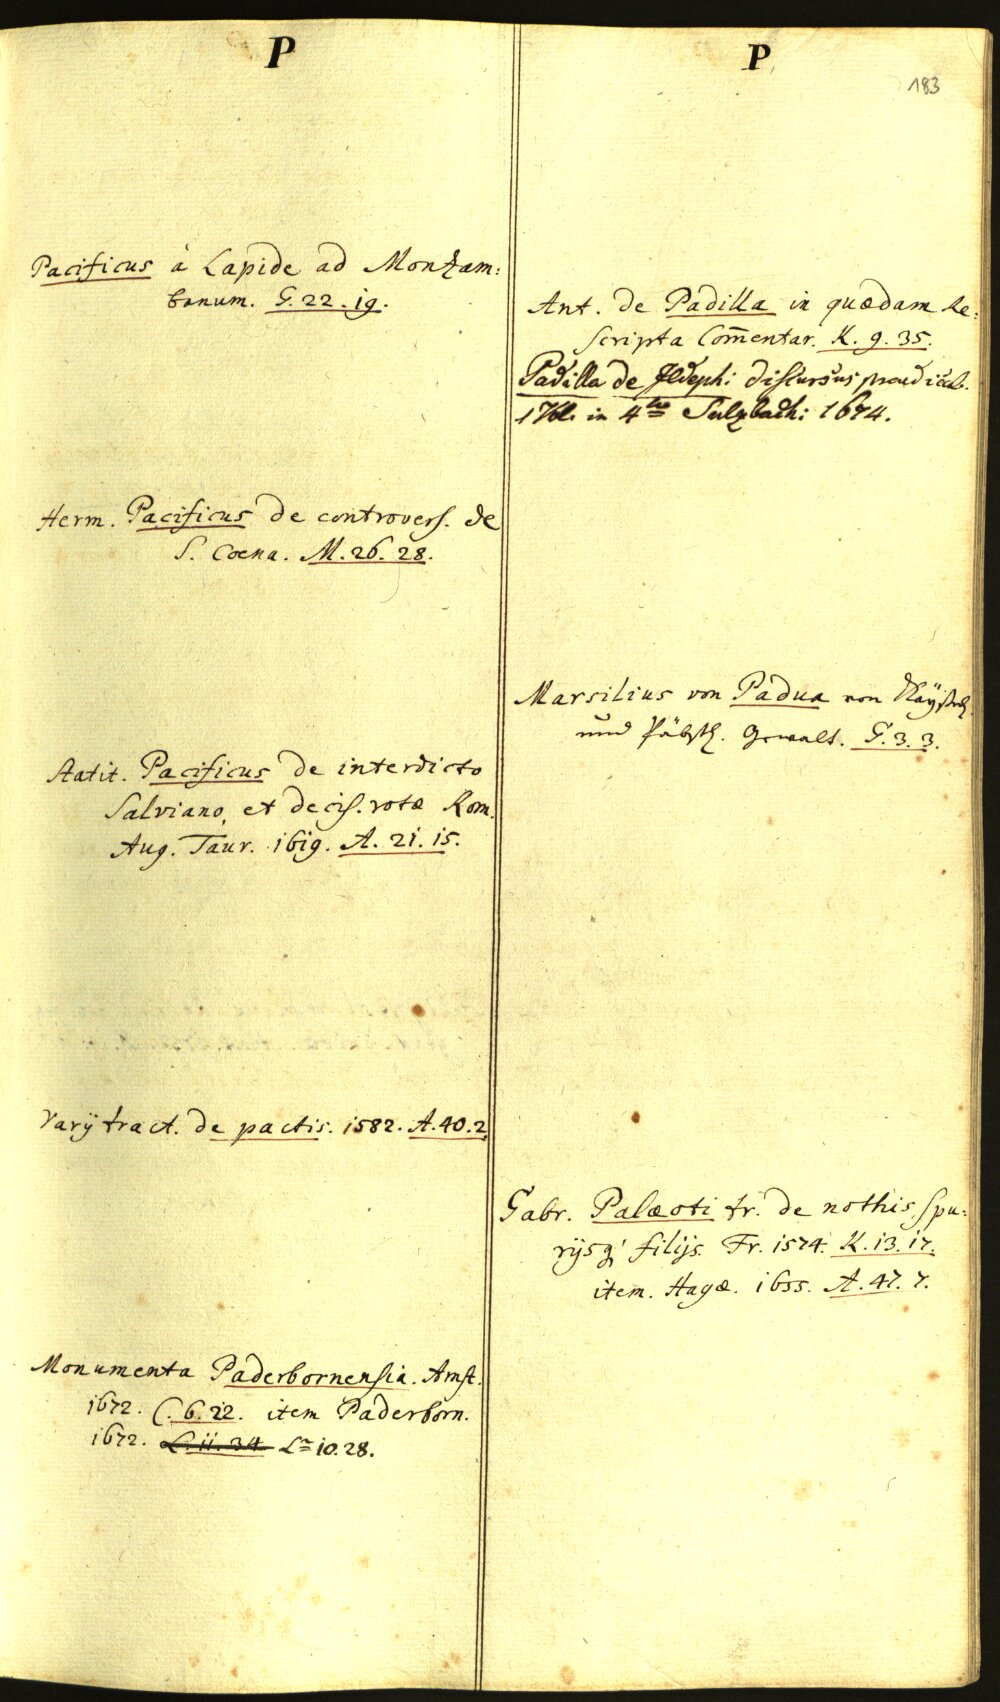 P
Pacificus à Lapide ad Monzam:
banum. G. 22. 19.
Herm. Pacificus de controvers. de
S. Coena. M. 26. 28.
Pacificus de interdicto
Salviano, et decis. rotæ Rom.
Aug. Taur. 1619. A. 21. 15.
Varÿ tract. de pactis. 1582. A. 40. 2.
Monumenta Paderbornensia. Amst.
1672. C. 6. 22. item Paderborn.
1672. L. 11. 34. L. 10. 28.
P
183
Ant. de Padilla in quædam Re:
scripta Com̄entar. K. 9. 35.
Padilla de discursus prædicab.
1 Vol. in 4to Sulzbach: 1674.
Marsilius von Padua von Kaÿserl.
und Päbstl. Gewalt. G. 3. 3.
Gabr. Palæoti tr. de nothis, spu:
rijsq' filijs. Fr. 1574. K. 13. 17.
item. Hagæ. 1655. A. 47. 7.